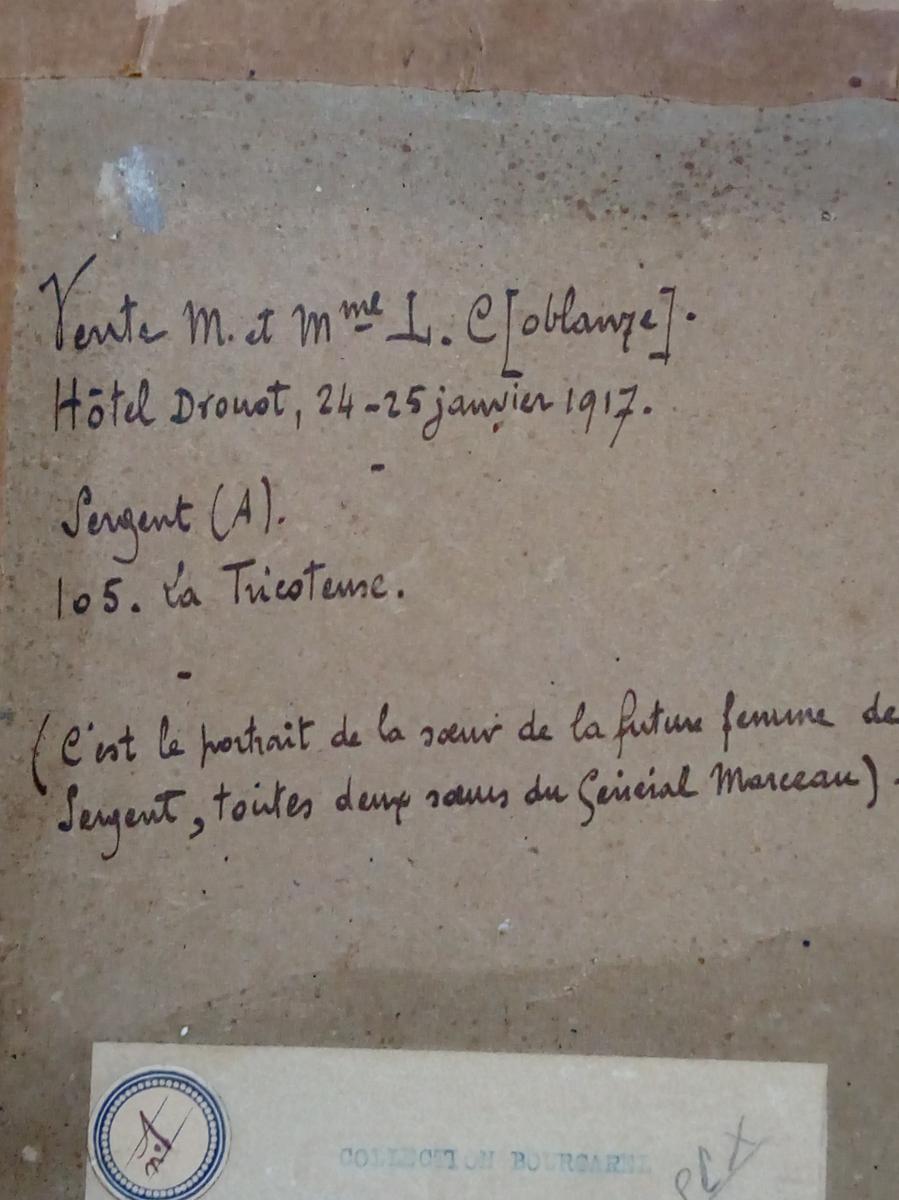 Vente M. et Mme L. C[oblanze].
Hôtel Drouot, 24-25 janvier 1917.
-
Sergent (A).
105. La Tricoteuse.
-
(C'est le portrait de la sœur de la future femme de
Sergent, toutes deux sœurs du Général Marceau).
COLLECTION BOURGAREL